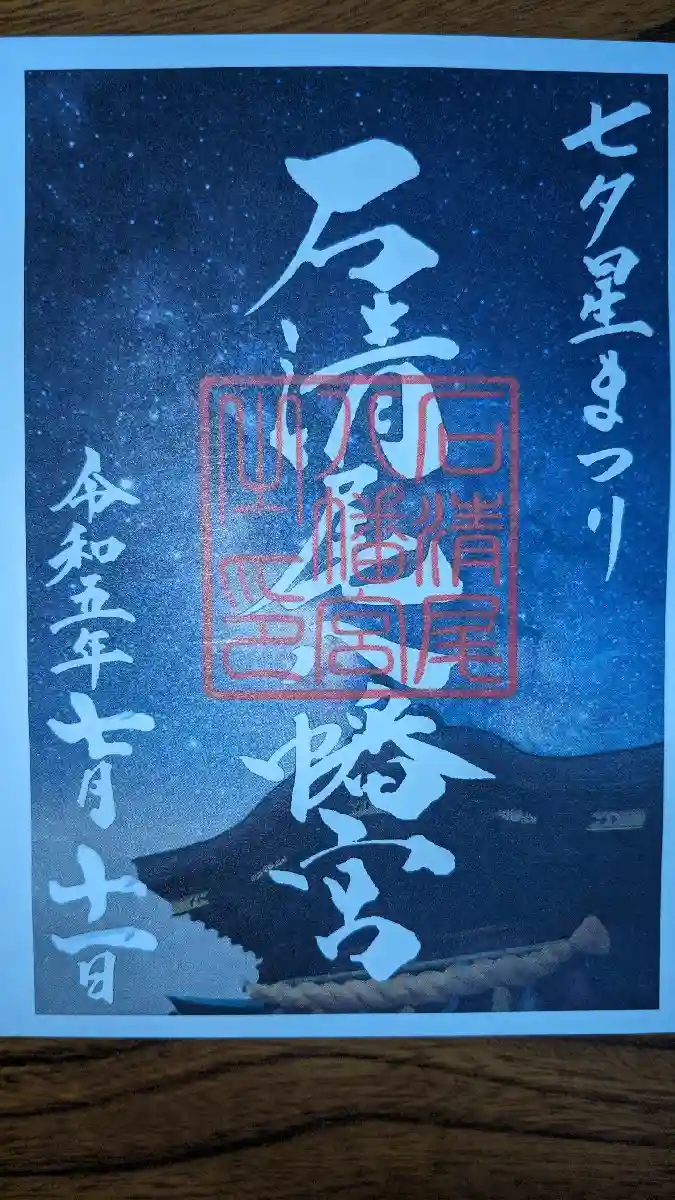 七夕星まつり
石清尾八幡宮
石清尾
八幡宮
之印
令和五年七月十一日